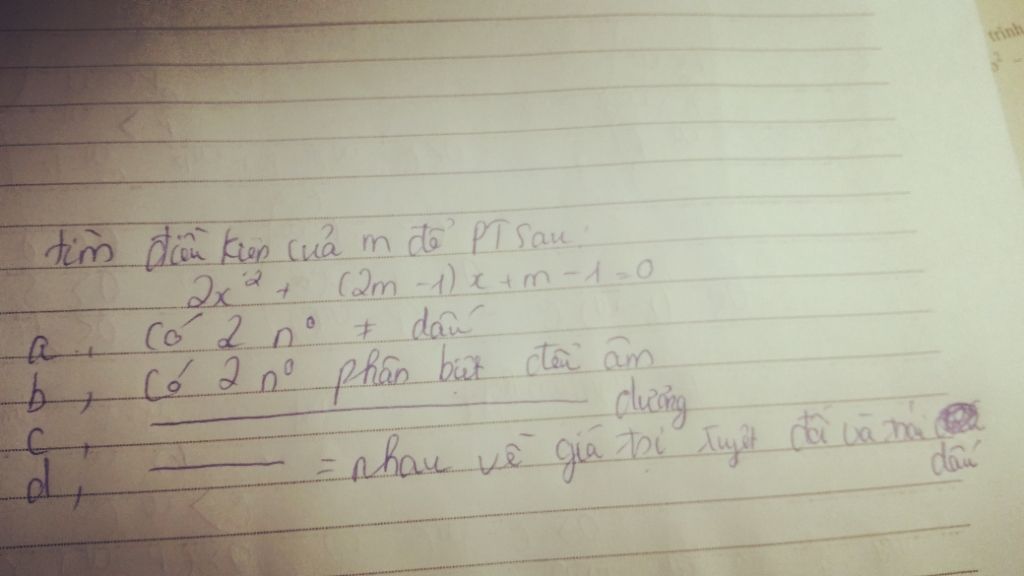 trình
tìm điều kiện của m để PT sau:
2x² + (2m - 1)x + m - 1 = 0
a, Có 2 n° ≠ dấu
b, Có 2 n° phân biệt đều âm
c, ———————— dương
d, ———— = nhau về giá trị tuyệt đối và trái
dấu